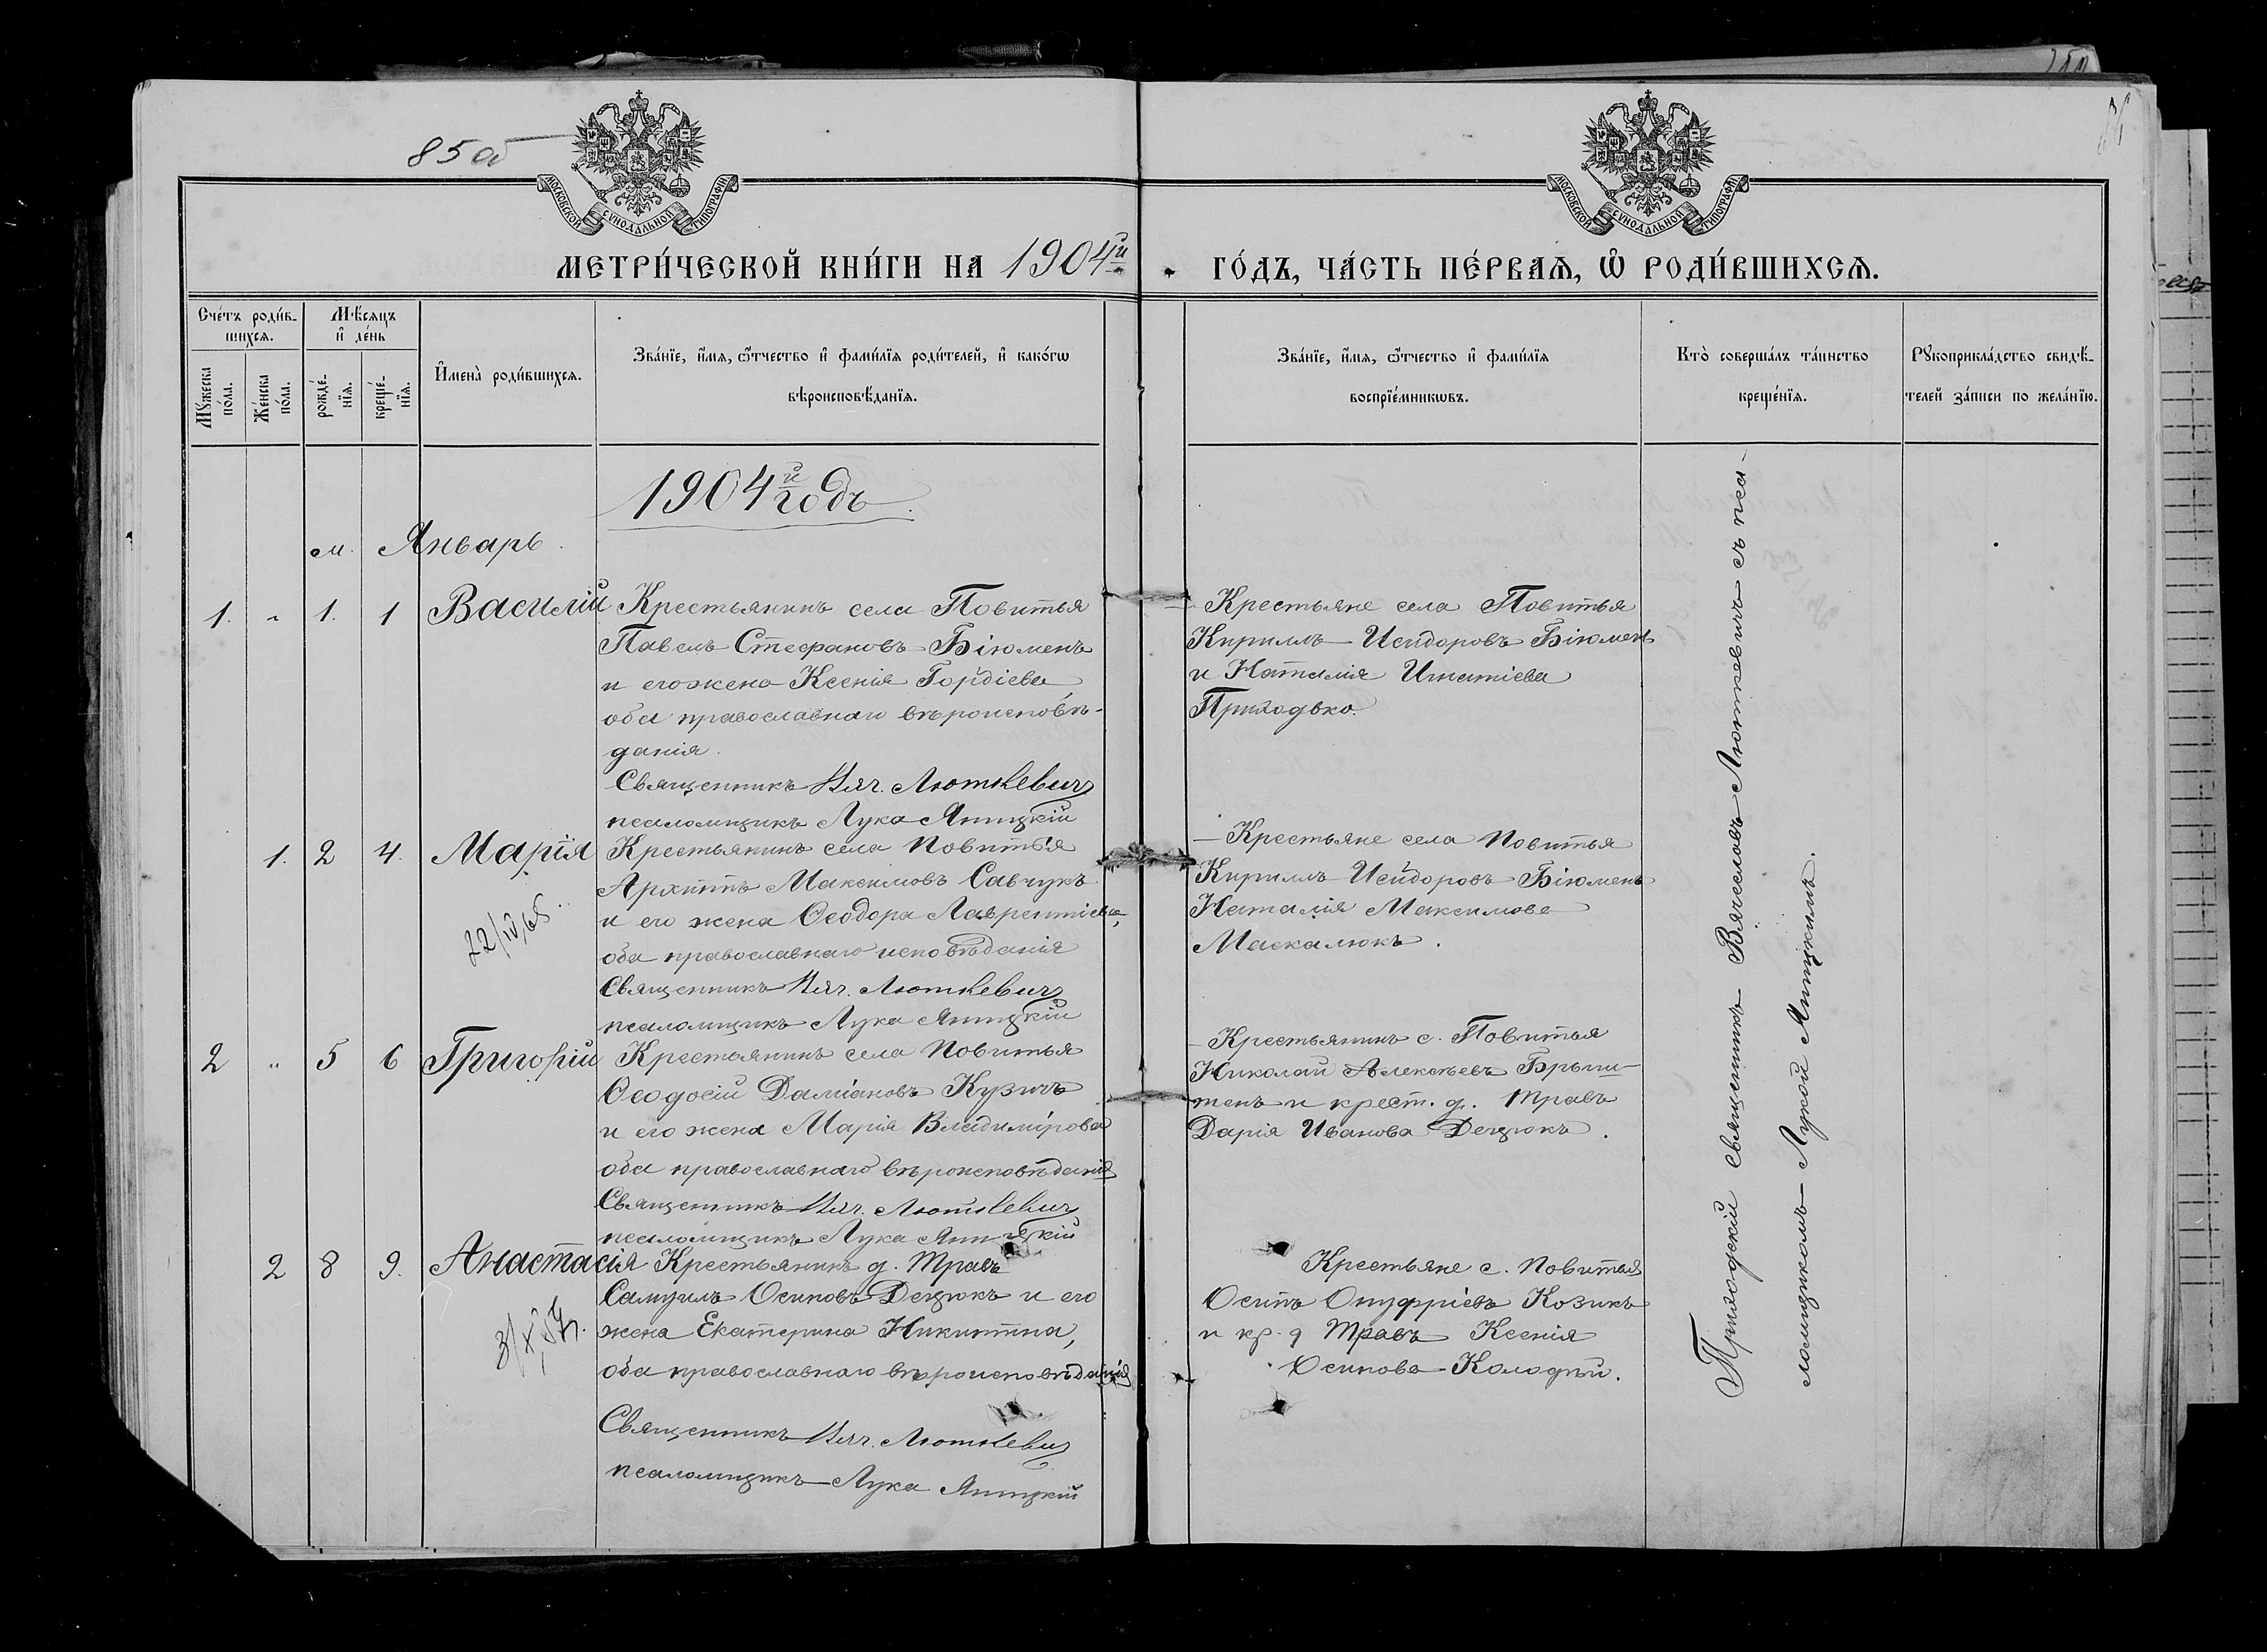 85 об
МОСКОВСКОЙ СѴНОДАЛЬНОЙ ТИПОГРАФІИ
МОСКОВСКОЙ СѴНОДАЛЬНОЙ ТИПОГРАФІИ
МЕТРИ́ЧЕСКОЙ КНИ́ГИ НА 1904й ГО́ДЪ, ЧА́СТЬ ПЕ́РВАѦ, Ѽ РОДИ́ВШИХСѦ.
Сче́тъ роди́в-
шихсѧ.
Мꙋ́жеска
по́ла.
Же́нска
по́ла.
Мѣ́сѧцъ
и҆ де́нь
рожде́-
нїѧ.
креще́-
нїѧ.
И҆мена̀ роди́вшихсѧ.
Зва́нїе, и҆́мѧ, ѻ҆́тчество и҆ фами́лїѧ роди́телей, и҆ како́гѡ
вѣроисповѣ́данїѧ.
Зва́нїе, и҆́мѧ, ѻ҆́тчество и҆ фами́лїѧ
воспрїе́мникѡвъ.
Кто̀ соверша́лъ та́инство
креще́нїѧ.
Рꙋкоприкла́дство свидѣ́-
телей за́писи по жела́нїю.
1904й годъ
м. Январь.
1. " 1. 1 Василій Крестьянинъ села Повитья
Павелъ Стефановъ Біюменъ
и его жена Ксенія Гордіева,
оба православнаго вѣроисповѣ-
данія.
Священникъ Вяч. Люткевич
псаломщикъ Лука Яницкій
Крестьяне села Повитья
Кириллъ Исидоровъ Біюмен
и Наталія Игнатіева
Приходько.
1. 2 4. Марія Крестьянинъ села Повитья
Архиппъ Максимовъ Савчукъ
и его жена Ѳеодора Лаврентіева,
оба православнаго исповѣданія
Священникъ Вяч. Люткевич
псаломщикъ Лука Яницкій
22/IV/65.
Крестьяне села Повитья
Кириллъ Исидоровъ Біюменъ
Наталія Максимова
Маскалюкъ.
2 " 5 6 Григорій Крестьянинъ села Повитья
Ѳеодосій Даміановъ Кузичъ
и его жена Марія Владимірова
оба православнаго вѣроисповѣданія
Священникъ Вяч. Люткевич
псаломщикъ Лука Яницкій
Крестьянинъ с. Повитья
Николай Алексѣевъ
и крест. д. Травъ
Дарія Иванова Децюкъ.
2 8 9. Анастасія Крестьянинъ д. Травъ
Самуилъ Осиповъ Децюкъ и его
жена Екатерина Никитина,
оба православнаго вѣроисповѣданія
Священникъ Вяч. Люткевич
псаломщикъ Лука Яницкій
Крестьяне с. Повитья
Осипъ Онуфріевъ Козикъ
и кр. д Травъ Ксенія
Осипова Колодѣй.
Приходскій священникъ Вячеславъ Люткевичъ съ пса-
ломщикомъ Лукой Яницкимъ.